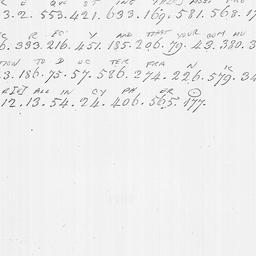 R E QUE ST ING THAT
3.2.553.421.633.169.581.568.1
R EC Y AND THAT YOUR COM MU
6.393.216.451.185.206.79.43.380.3
TION TO D OC TER FRA N K
3.186.75.57.586.274.226.579.34
ALL IN CY PH ER
12.13.54.24.406.565.177.